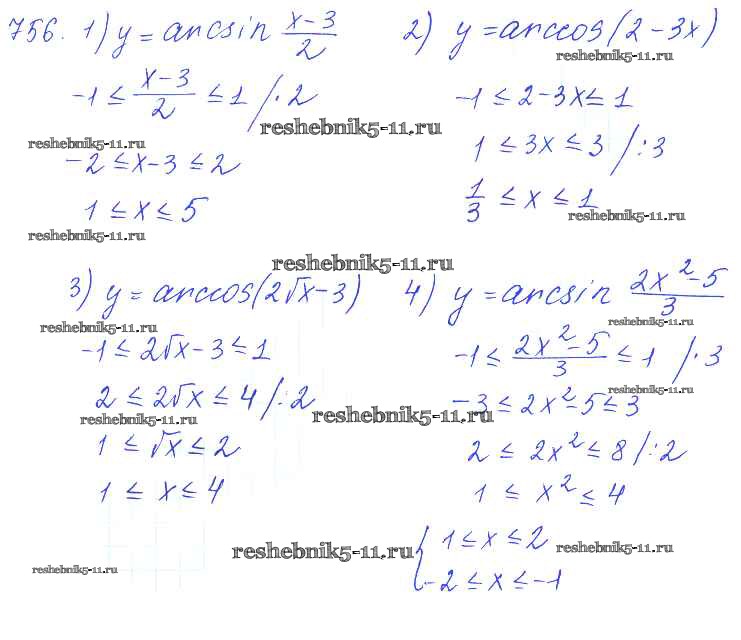 756. 1) y = arcsin (x-3)/2
-1 ≤ (x-3)/2 ≤ 1 /·2
reshebnik5-11.ru
reshebnik5-11.ru
-2 ≤ x-3 ≤ 2
1 ≤ x ≤ 5
reshebnik5-11.ru
2) y = arccos(2-3x)
reshebnik5-11.ru
-1 ≤ 2-3x ≤ 1
1 ≤ 3x ≤ 3 /:3
1/3 ≤ x ≤ 1
reshebnik5-11.ru
reshebnik5-11.ru
3) y = arccos(2√x-3)
reshebnik5-11.ru
-1 ≤ 2√x-3 ≤ 1
2 ≤ 2√x ≤ 4 /:2
reshebnik5-11.ru
reshebnik5-11.ru
1 ≤ √x ≤ 2
1 ≤ x ≤ 4
4) y = arcsin (2x²-5)/3
reshebnik5-11.ru
-1 ≤ (2x²-5)/3 ≤ 1 /·3
reshebnik5-11.ru
-3 ≤ 2x²-5 ≤ 3
2 ≤ 2x² ≤ 8 /:2
1 ≤ x² ≤ 4
reshebnik5-11.ru
{ 1 ≤ x ≤ 2
reshebnik5-11.ru
-2 ≤ x ≤ -1
reshebnik5-11.ru